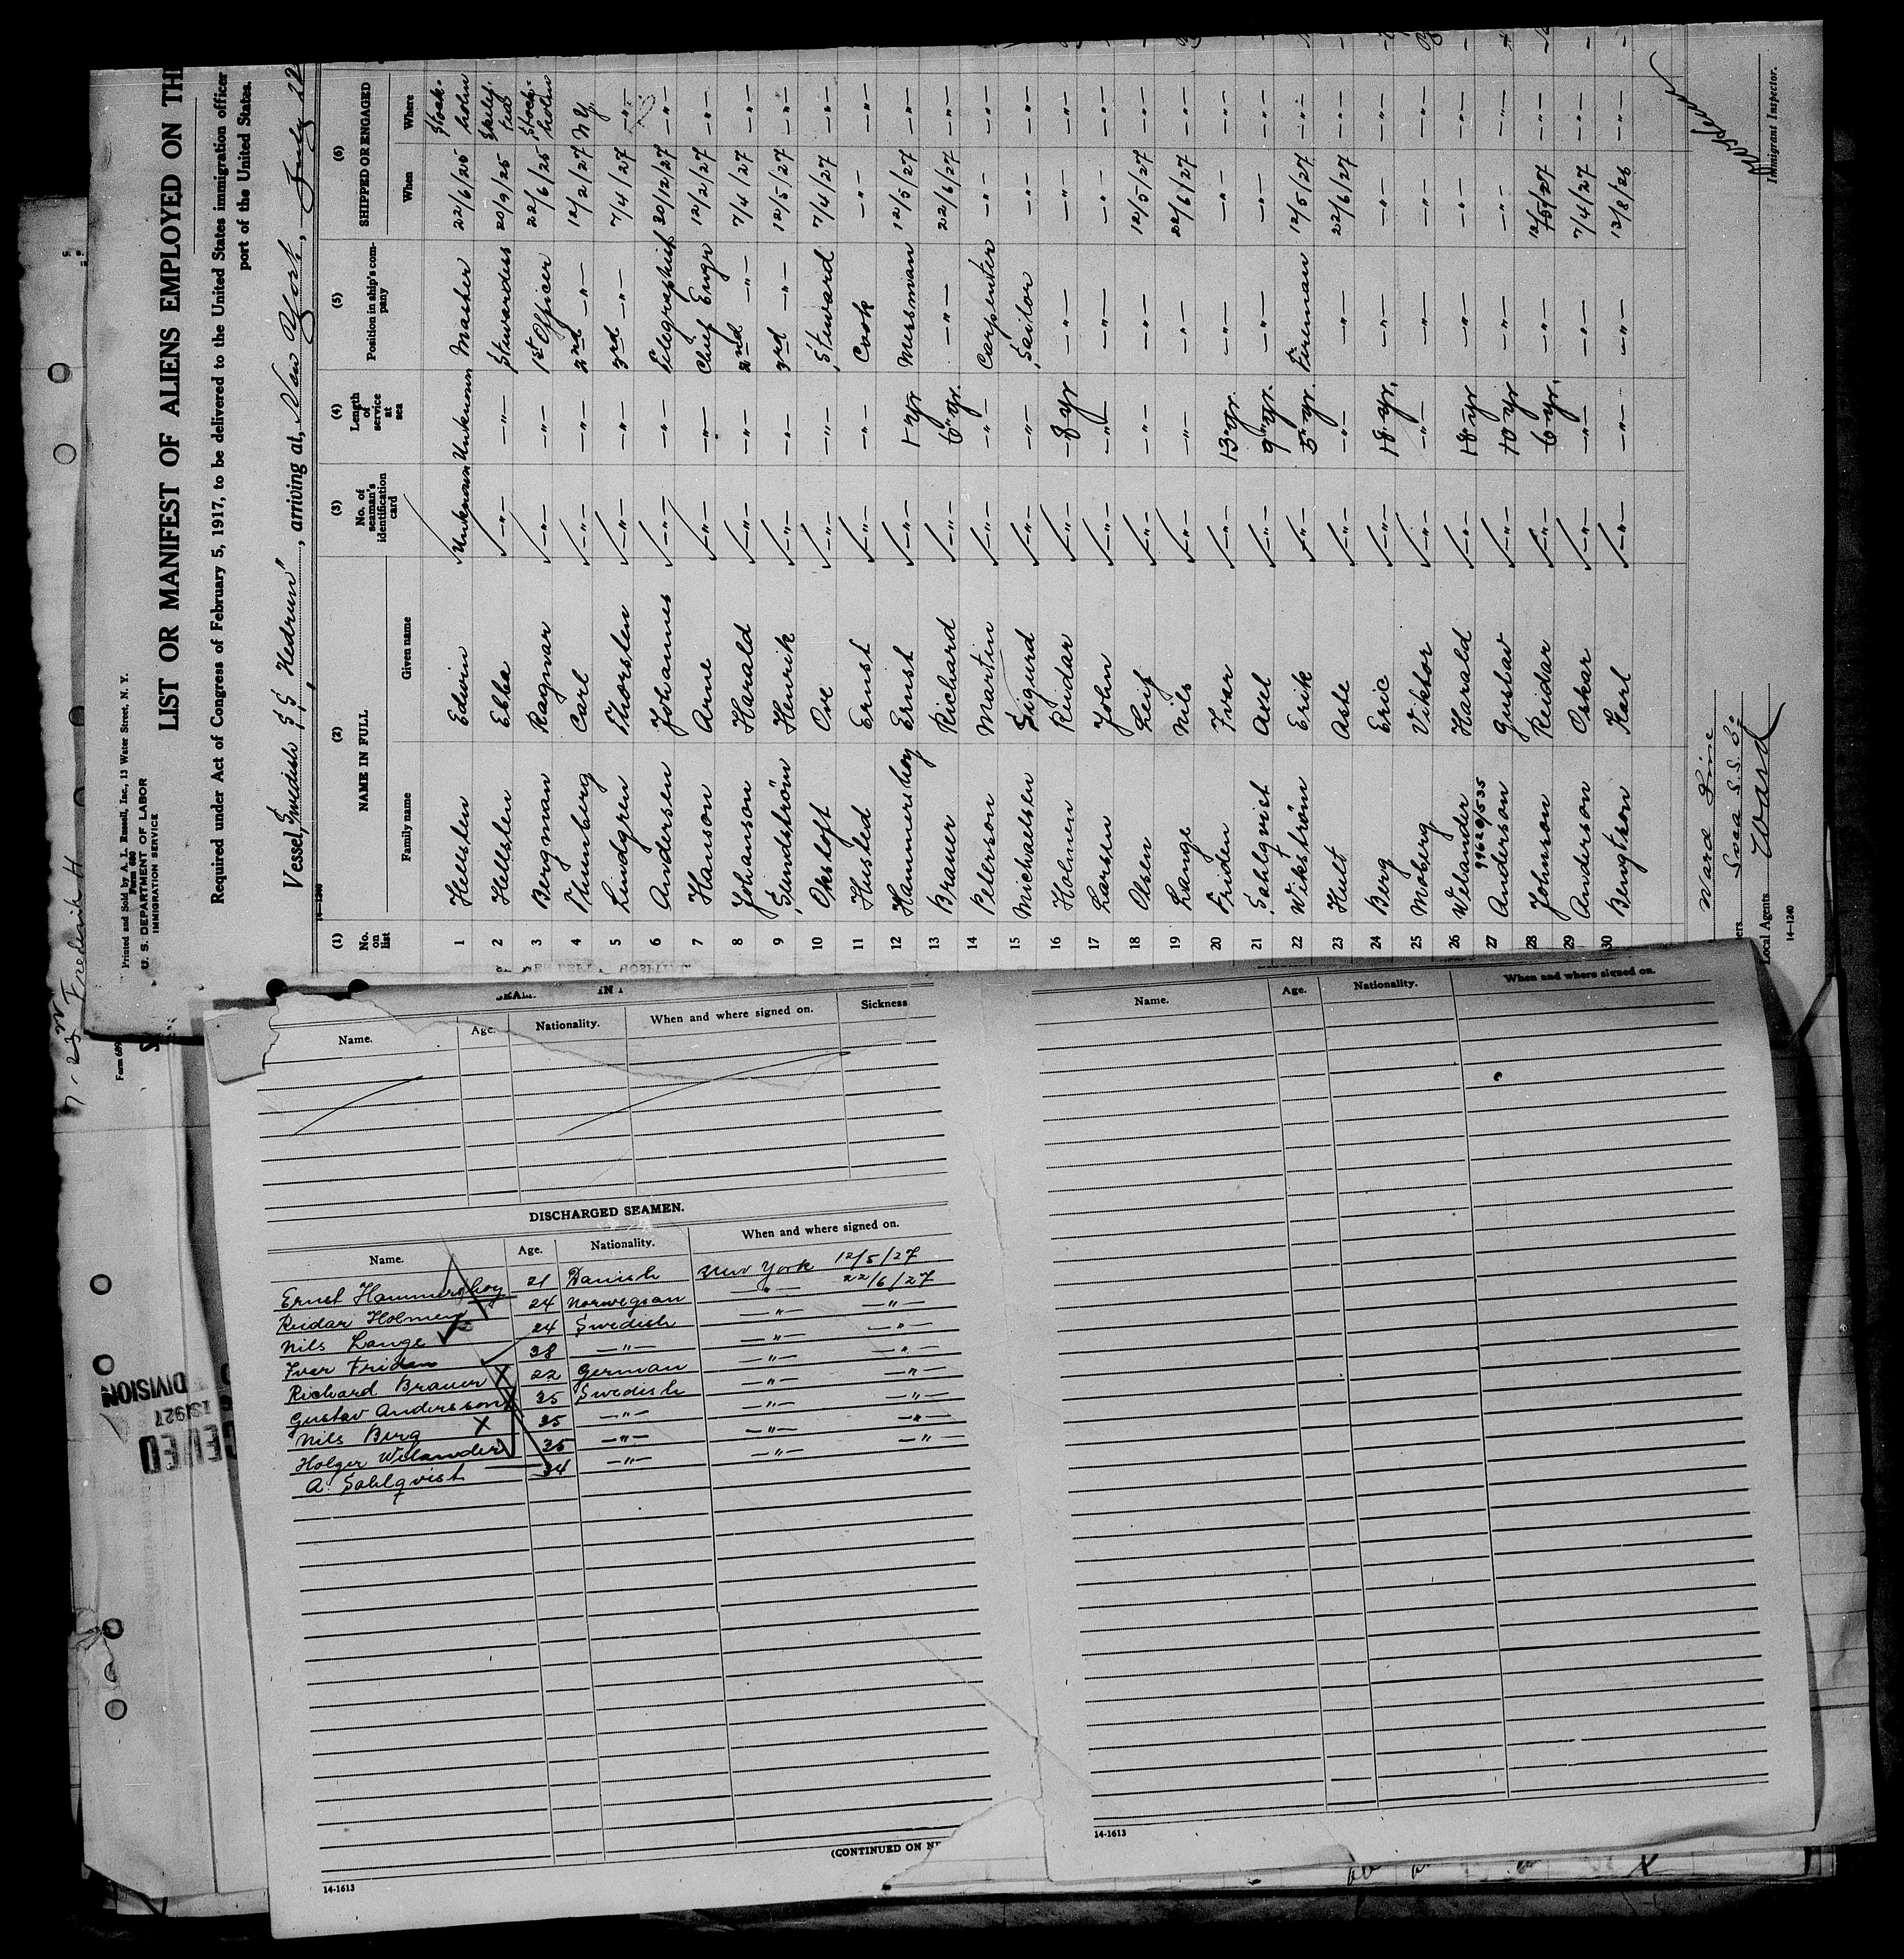 Printed and Sold by A. L. Russell, Inc., 13 Water Street, N. Y.
Form 680
U. S. DEPARTMENT OF LABOR
IMMIGRATION SERVICE
LIST OR MANIFEST OF ALIENS EMPLOYED ON TH
Required under Act of Congress of February 5, 1917, to be delivered to the United States immigration officer
port of the United States.
Vessel, Swedish SS "Hedrun", arriving at, New York, July 22
14-1240
(1) (2) (3) (4) (5) (6)
No. on list NAME IN FULL No. of seaman's identification card Length of service at sea Position in ship's company SHIPPED OR ENGAGED
Family name Given name When Where
1 Hellsten Edwin Unknown Unknown Master 22/6/25 Stockholm
2 Hellsten Ebba —"— —"— Stewardess 20/9/25
3 Bergman Ragnar —"— —"— 1st Officer 22/6/25 Stockholm
4 Thunberg Carl —"— —"— 2nd —"— 12/2/27 N Y.
5 Lindgren Thorsten —"— —"— 3rd —"— 7/4/27 —"—
6 Andersen Johannes —"— —"— Telegraphist 30/12/27 —"—
7 Hanson Arne —"— —"— Chief Engr 12/2/27 —"—
8 Johanson Harald —"— —"— 2nd —"— 7/4/27 —"—
9 Slundström Henrik —"— —"— 3rd —"— 12/5/27 —"—
10 Oksloft Ove —"— —"— Steward 7/4/27 —"—
11 Husted Ernst —"— —"— Cook —"— —"—
12 Hammershoy Ernst —"— 1 yr Messman 12/5/27 —"—
13 Brauer Richard —"— 6 yr. —"— 22/6/27 —"—
14 Peterson Martin —"— —"— Carpenter —"— —"—
15 Michaelsen Sigurd —"— —"— Sailor —"— —"—
16 Holmen Reidar —"— 8 yr —"— —"— —"—
17 Larsen John —"— —"— —"— —"— —"—
18 Olsen Leif —"— —"— —"— 12/5/27 —"—
19 Lange Nils —"— —"— —"— 22/6/27 —"—
20 Friden Ivar —"— 13 yr. —"— —"— —"—
21 Sahlqvist Axel —"— 9 yr. —"— —"— —"—
22 Wikström Erik —"— 5 yr. Fireman 12/5/27 —"—
23 Hult Asle —"— —"— —"— 22/6/27 —"—
24 Berg Eric —"— 18 yr. —"— —"— —"—
25 Moberg Viktor —"— —"— —"— —"— —"—
26 Welander Harald —"— 18 yr —"— —"— —"—
99620/535
27 Anderson Gustav —"— 10 yr —"— —"— —"—
28 Johnson Reidar —"— 6 yr. —"— 12/5/27 —"—
29 Anderson Oskar —"— —"— —"— 7/4/27 —"—
30 Bengtson Karl —"— —"— —"— 13/8/26 —"—
Ward Line
ers S.S. Co
Local Agents Ward
Immigrant Inspector.
14-1240
7-23 Frederik H
Form 689
Name. Age. Nationality. When and where signed on. Sickness
DISCHARGED SEAMEN.
Name. Age. Nationality. When and where signed on.
Ernst Hammershoy 21 Danish New York 12/5/27
Reidar Holmen 24 Norwegian —"— 22/6/27
Nils Lange 24 Swedish —"— —"—
Iver Friden 38 —"— —"— —"—
Richard Brauer X 22 German —"— —"—
Gustav Andersson 35 Swedish —"— —"—
Nils Berg X 35 —"— —"— —"—
Holger Welander 35 —"— —"— —"—
A. Sahlqvist 34 —"— —"— —"—
(CONTINUED ON NE
14-1613
Name. Age. Nationality. When and where signed on.
14-1613
DIVISION
1927